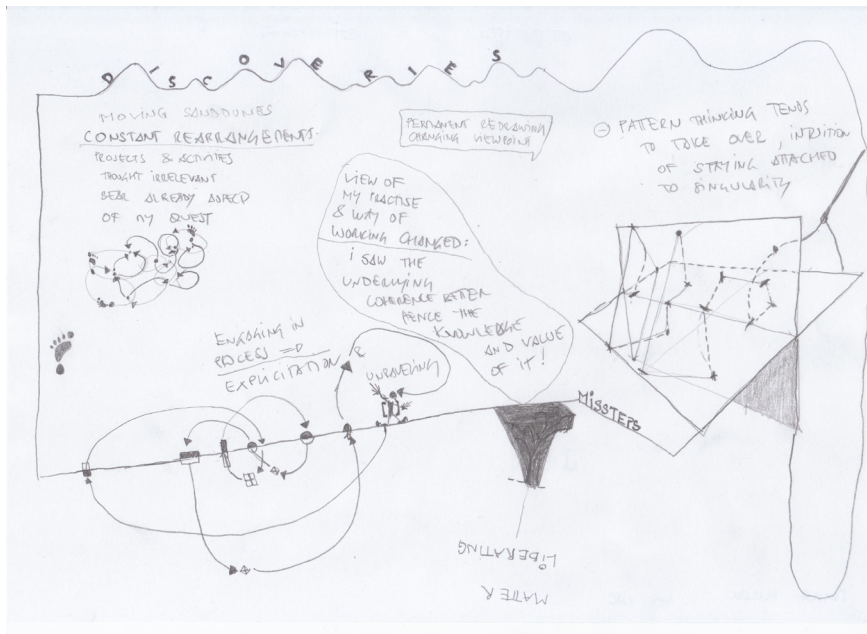 DISCOVERIES
MOVING SANDDUNES
CONSTANT REARRANGEMENTS.
PROJECTS & ACTIVITIES
THOUGHT IRRELEVANT
BEAR ALREADY ASPECT
OF MY QUEST
PERMANENT REDRAWING
CHANGING VIEWPOINT
PATTERN THINKING TENDS
TO TAKE OVER, INTUITION
OF STAYING ATTACHED
TO SINGULARITY
VIEW OF
MY PRACTISE
& WAY OF
WORKING CHANGED:
I SAW THE
UNDERLYING
COHERENCE BETTER
HENCE THE
KNOWLEDGE
AND VALUE
OF IT!
ENGAGING IN
PROCESS
EXPLICITATION
UNRAVELING
MISSTEPS
LIBERATING
MATTER